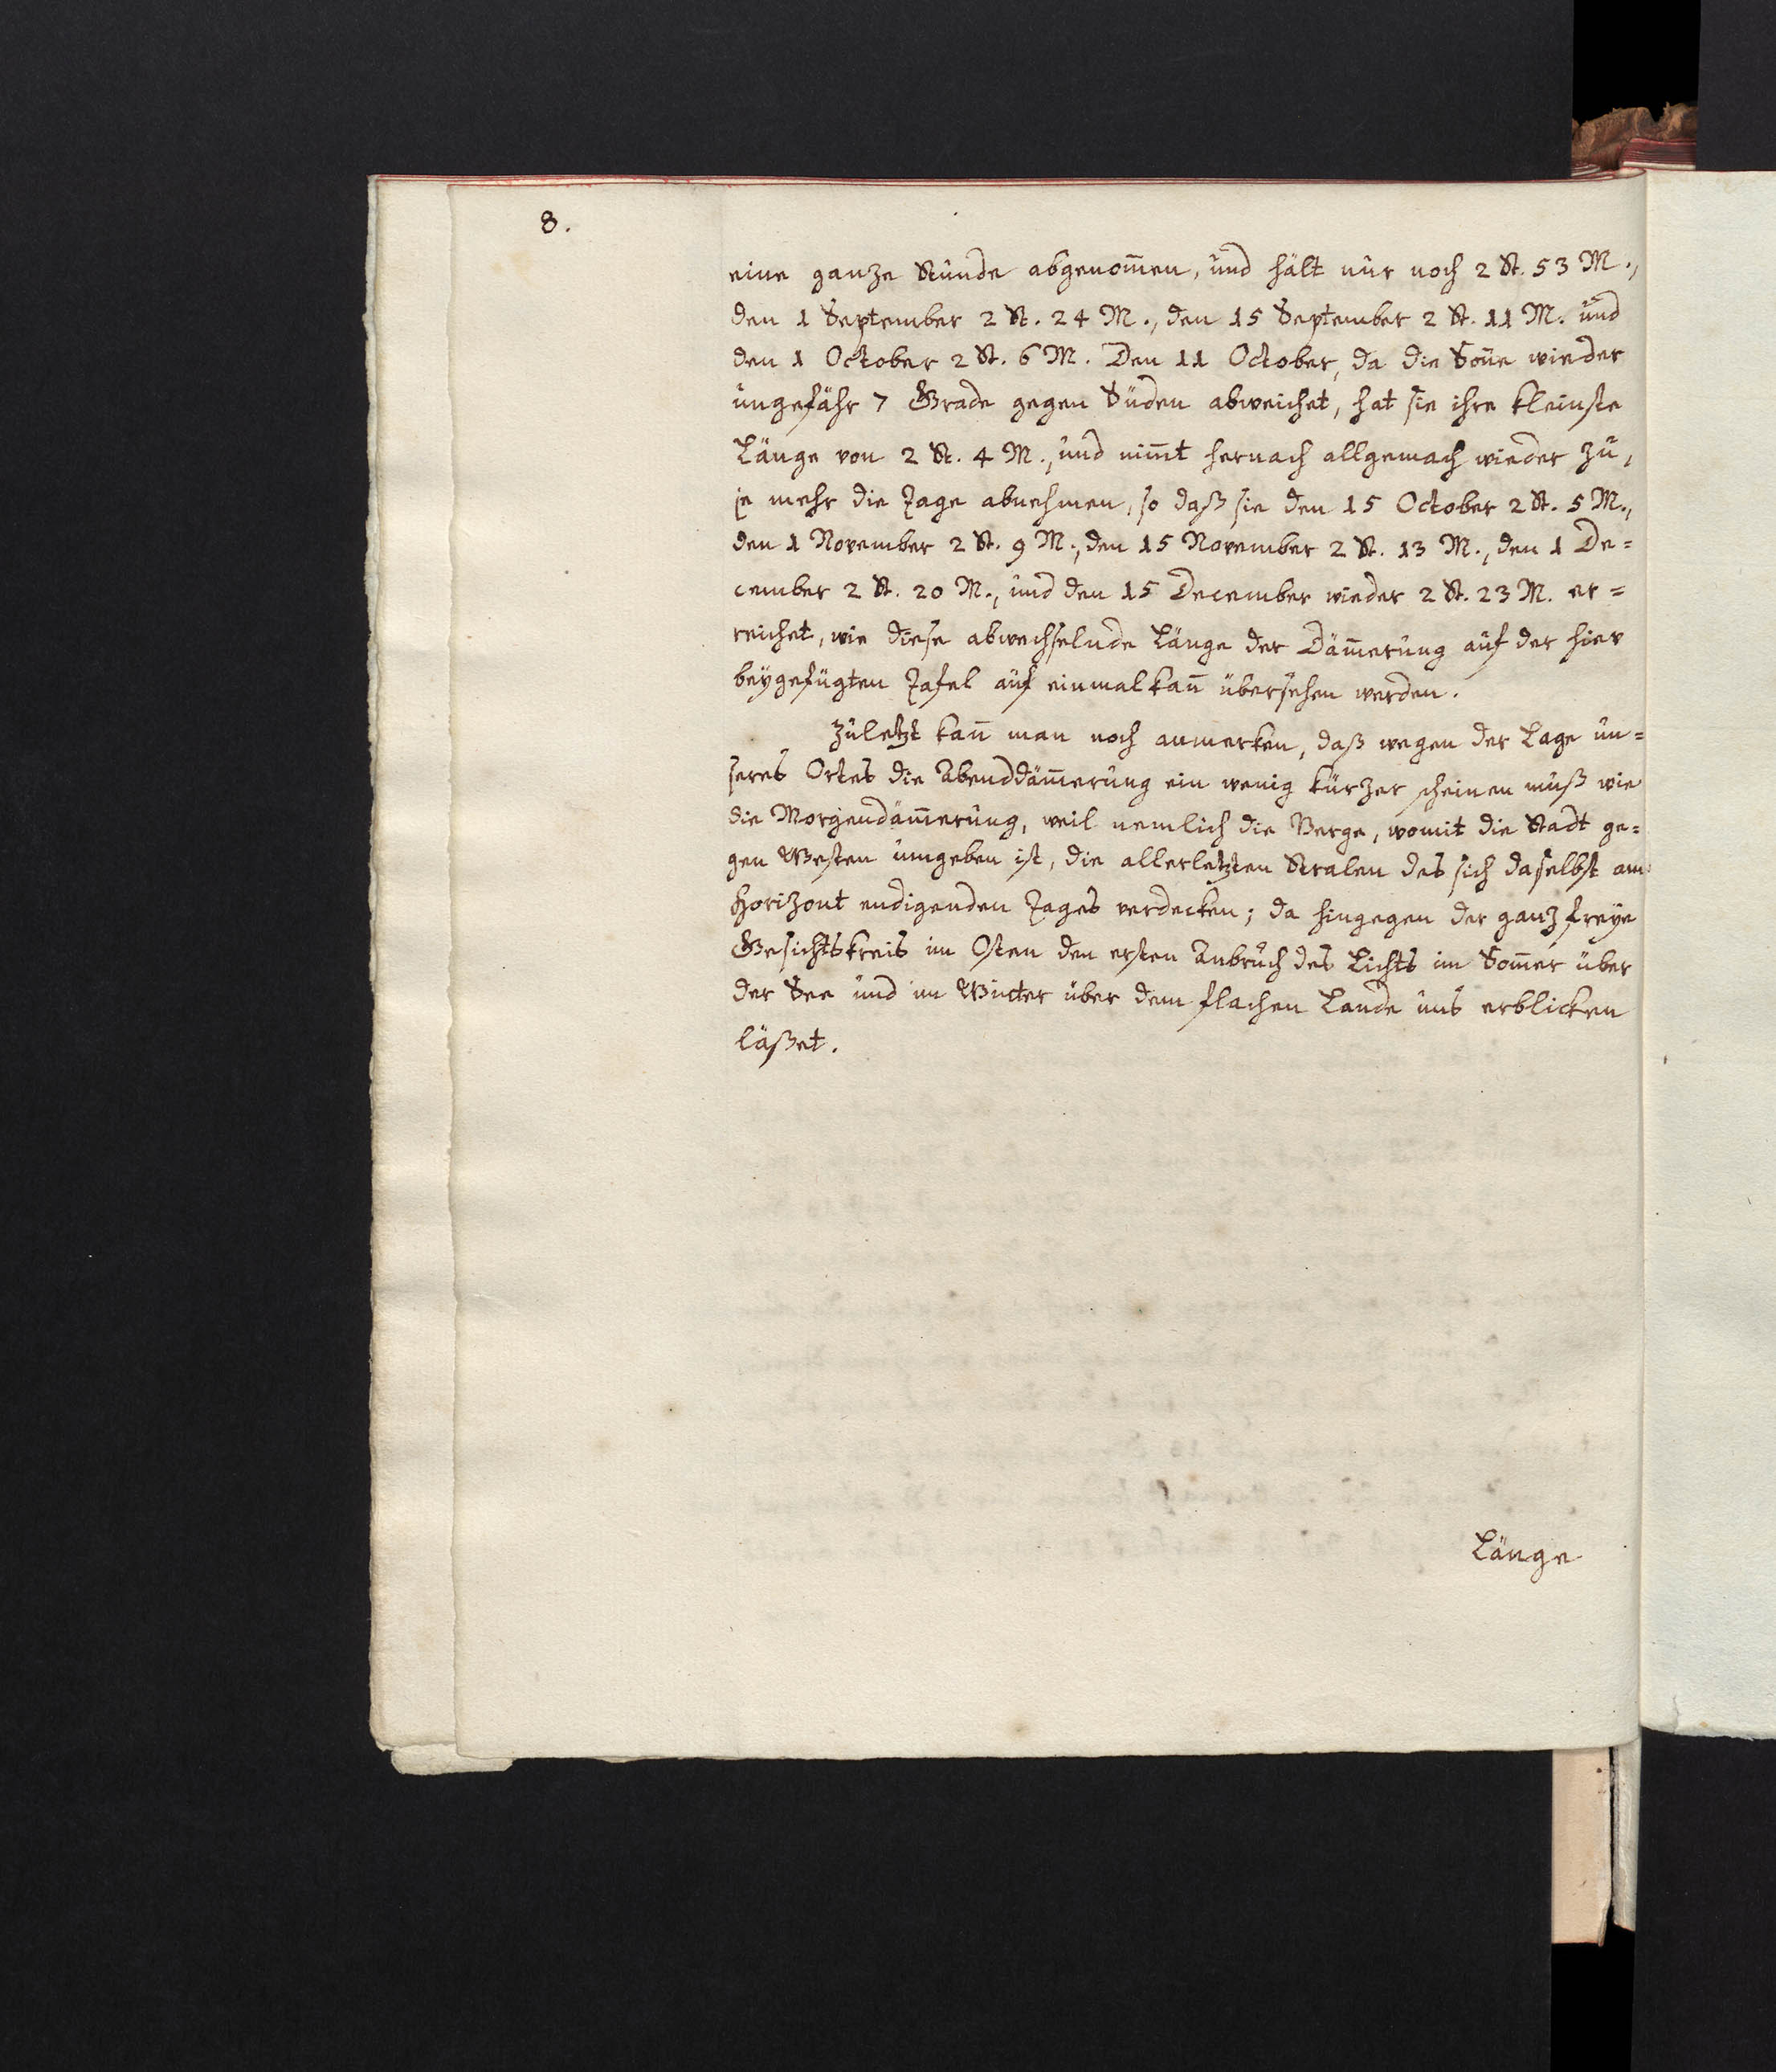 8.
eine ganze Stunde abgenom̅en, und hält nur noch 2 St. 53 M.,
den 1 September 2 St. 24 M., den 15 September 2 St. 11 M. und
den 1 October 2 St. 6 M. Den 11 October, da die Son̅e wieder
ungefähr 7 Grade gegen Süden abweichet, hat sie ihre kleinste
Länge von 2 St. 4 M., und nim̅t hernach allgemach wieder zu,
je mehr die Tage abnehmen, so daß sie den 15 October 2 St. 5 M.,
den 1 November 2 St. 9 M., den 15 November 2 St. 13 M., den 1 De=
cember 2 St. 20 M., und den 15 December wieder 2 St. 23 M. er=
reichet, wie diese abwechselnde Länge der Däm̅erung auf der hier
beygefügten Tafel auf einmal kan̅ übersehen werden.
Zuletzt kan̅ man noch anmerken, daß wegen der Lage un=
seres Ortes die Abenddäm̅erung ein wenig kürzer scheinen muß wie
die Morgendäm̅erung, weil nemlich die Berge, womit die Stadt ge=
gen Westen umgeben ist, die allerletzten Stralen des sich daselbst am
Horizont endigenden Tages verdecken; da hingegen der ganz freye
Gesichtskreis im Osten den ersten Anbruch des Lichts im Som̅er über
der See und im Winter über dem flachen Lande uns erblicken
läßet.
Länge